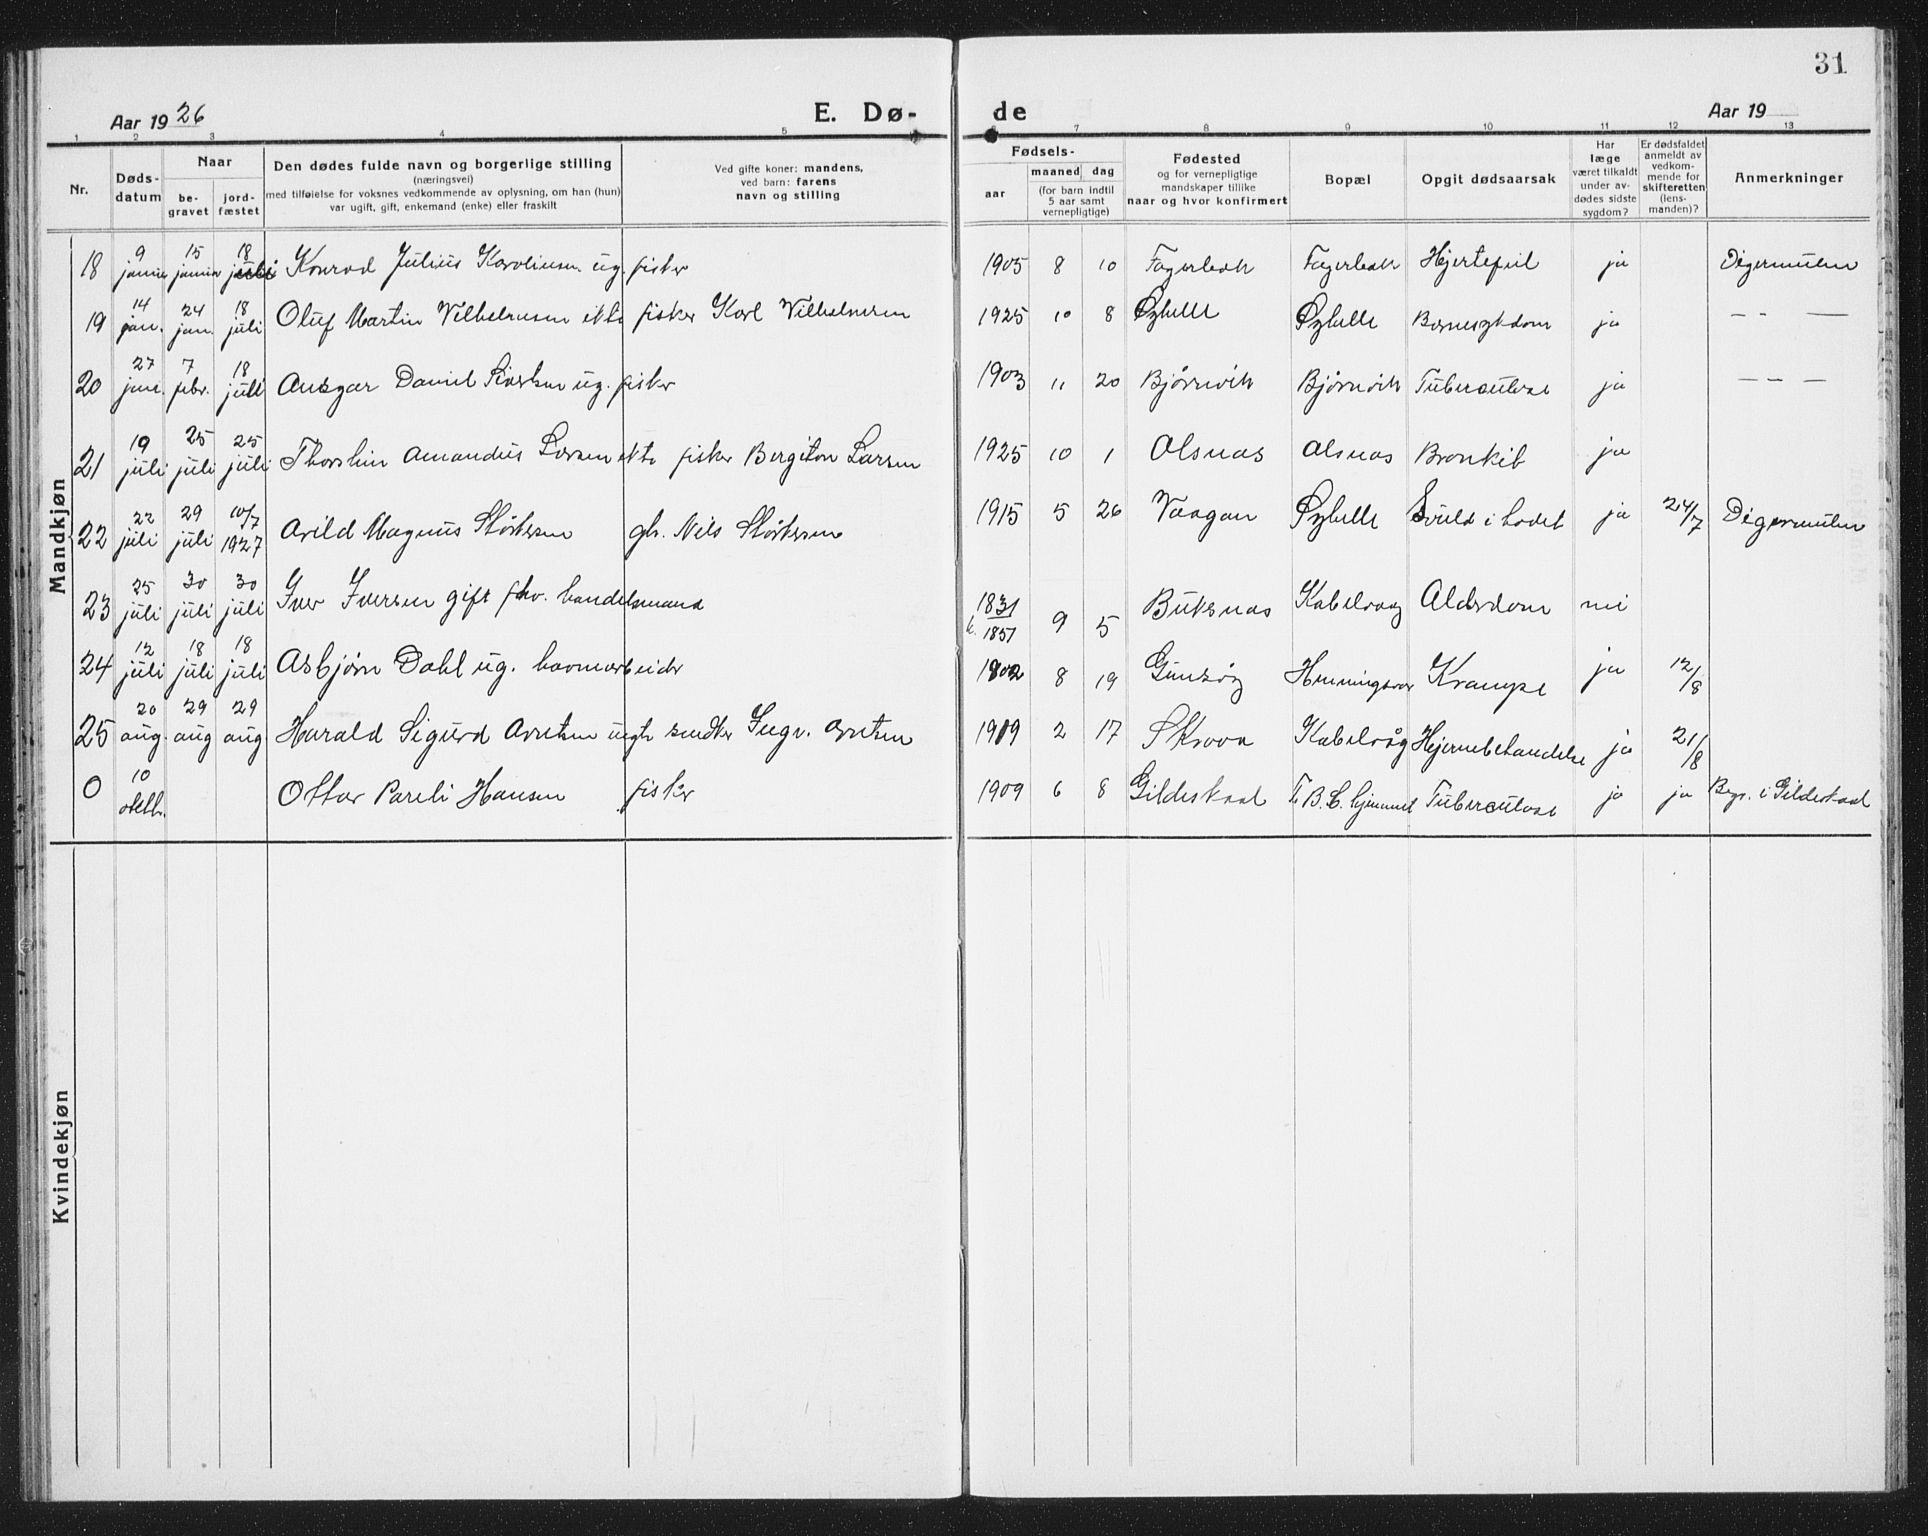 31
Aar 1926 E. Dø- de Aar 19
1 2 3 4 5 7 8 9 10 11 12 13
Nr. Døds-datum Naar be-gravet jord-fæstet Den dødes fulde navn og borgerlige stilling (næringsvei) med tilføielse for voksnes vedkommende av oplysning, om han (hun) var ugift, gift, enkemand (enke) eller fraskilt Ved gifte koner: mandens, ved barn: farens navn og stilling Fødsels- aar maaned dag (for barn indtil 5 aar samt vernepligtige) Fødested og for vernepligtige mandskaper tillike naar og hvor konfirmert Bopæl Opgit dødsaarsak Har læge været tilkaldt under av-dødes sidste sygdom? Er dødsfaldet anmeldt av vedkom-mende for skifteretten (lens-manden)? Anmerkninger
Mandkjøn
18 9 januar 15 januar 18 juli Konrad Julius Karoliusen ug. fisker 1905 8 10 Fagerbakk Fagerbakk Hjertefeil ja Digermulen
19 14 jan. 24 jan. 18 juli Oluf Martin Vilhelmsen ekte fisker Karl Vilhelmsen 1925 10 8 Øyhelle Øyhelle Barnesykdom ja — — —
20 27 jan. 7 febr. 18 juli Ansgar Daniel Sivertsen ug. fisker 1903 11 20 Bjørnvik Bjørnvik Tuberculose ja — — —
21 19 juli 25 juli 25 juli Thorstein Amandus Larsen ekte fisker Bergiton Larsen 1925 10 1 Olsnas Olsnas Bronkit ja
22 22 juli 29 juli 10/7 1927 Arild Magnus Størkersen gb. Nils Størkersen 1915 5 26 Vaagan Øyhelle Svuld i hodet ja 24/7 Digermulen
23 25 juli 30 juli 30 juli Iver Iversen gift fhv. handelsmand 1831 k. 1851 9 5 Buksnas Kabelvaag Alderdom nei
24 12 juli 18 juli 18 juli Asbjørn Dahl ug. havnearbeider 1902 8 19 Gimsøy Henningsvær Krampe ja 12/8
25 20 aug. 29 aug 29 aug Harald Sigurd Arntsen uegte snedker Ingv. Arntsen 1919 2 17 Skrova Kabelvåg Hjernebetændelse ja 21/8
0 10 oktbr. Ottar Pareli Hansen fisker 1909 6 8 Gildeskaal T.B.C. hjemmet Tuberculose ja ja Begr. i Gildeskaal
Kvindekjøn